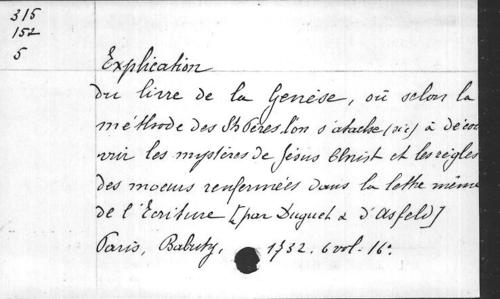 315
152
5
Explication
du livre de la Genèse, où selon la
méthode des Sts Pères l'on s'atache (sic) à décou
vrir les mystères de Jésus Christ et les règles
des moeurs renfermées dans la lettre même
de l'Ecriture [par Duguet & d'Asfeld]
Paris, Babuty, 1732. 6 vol. 16º.